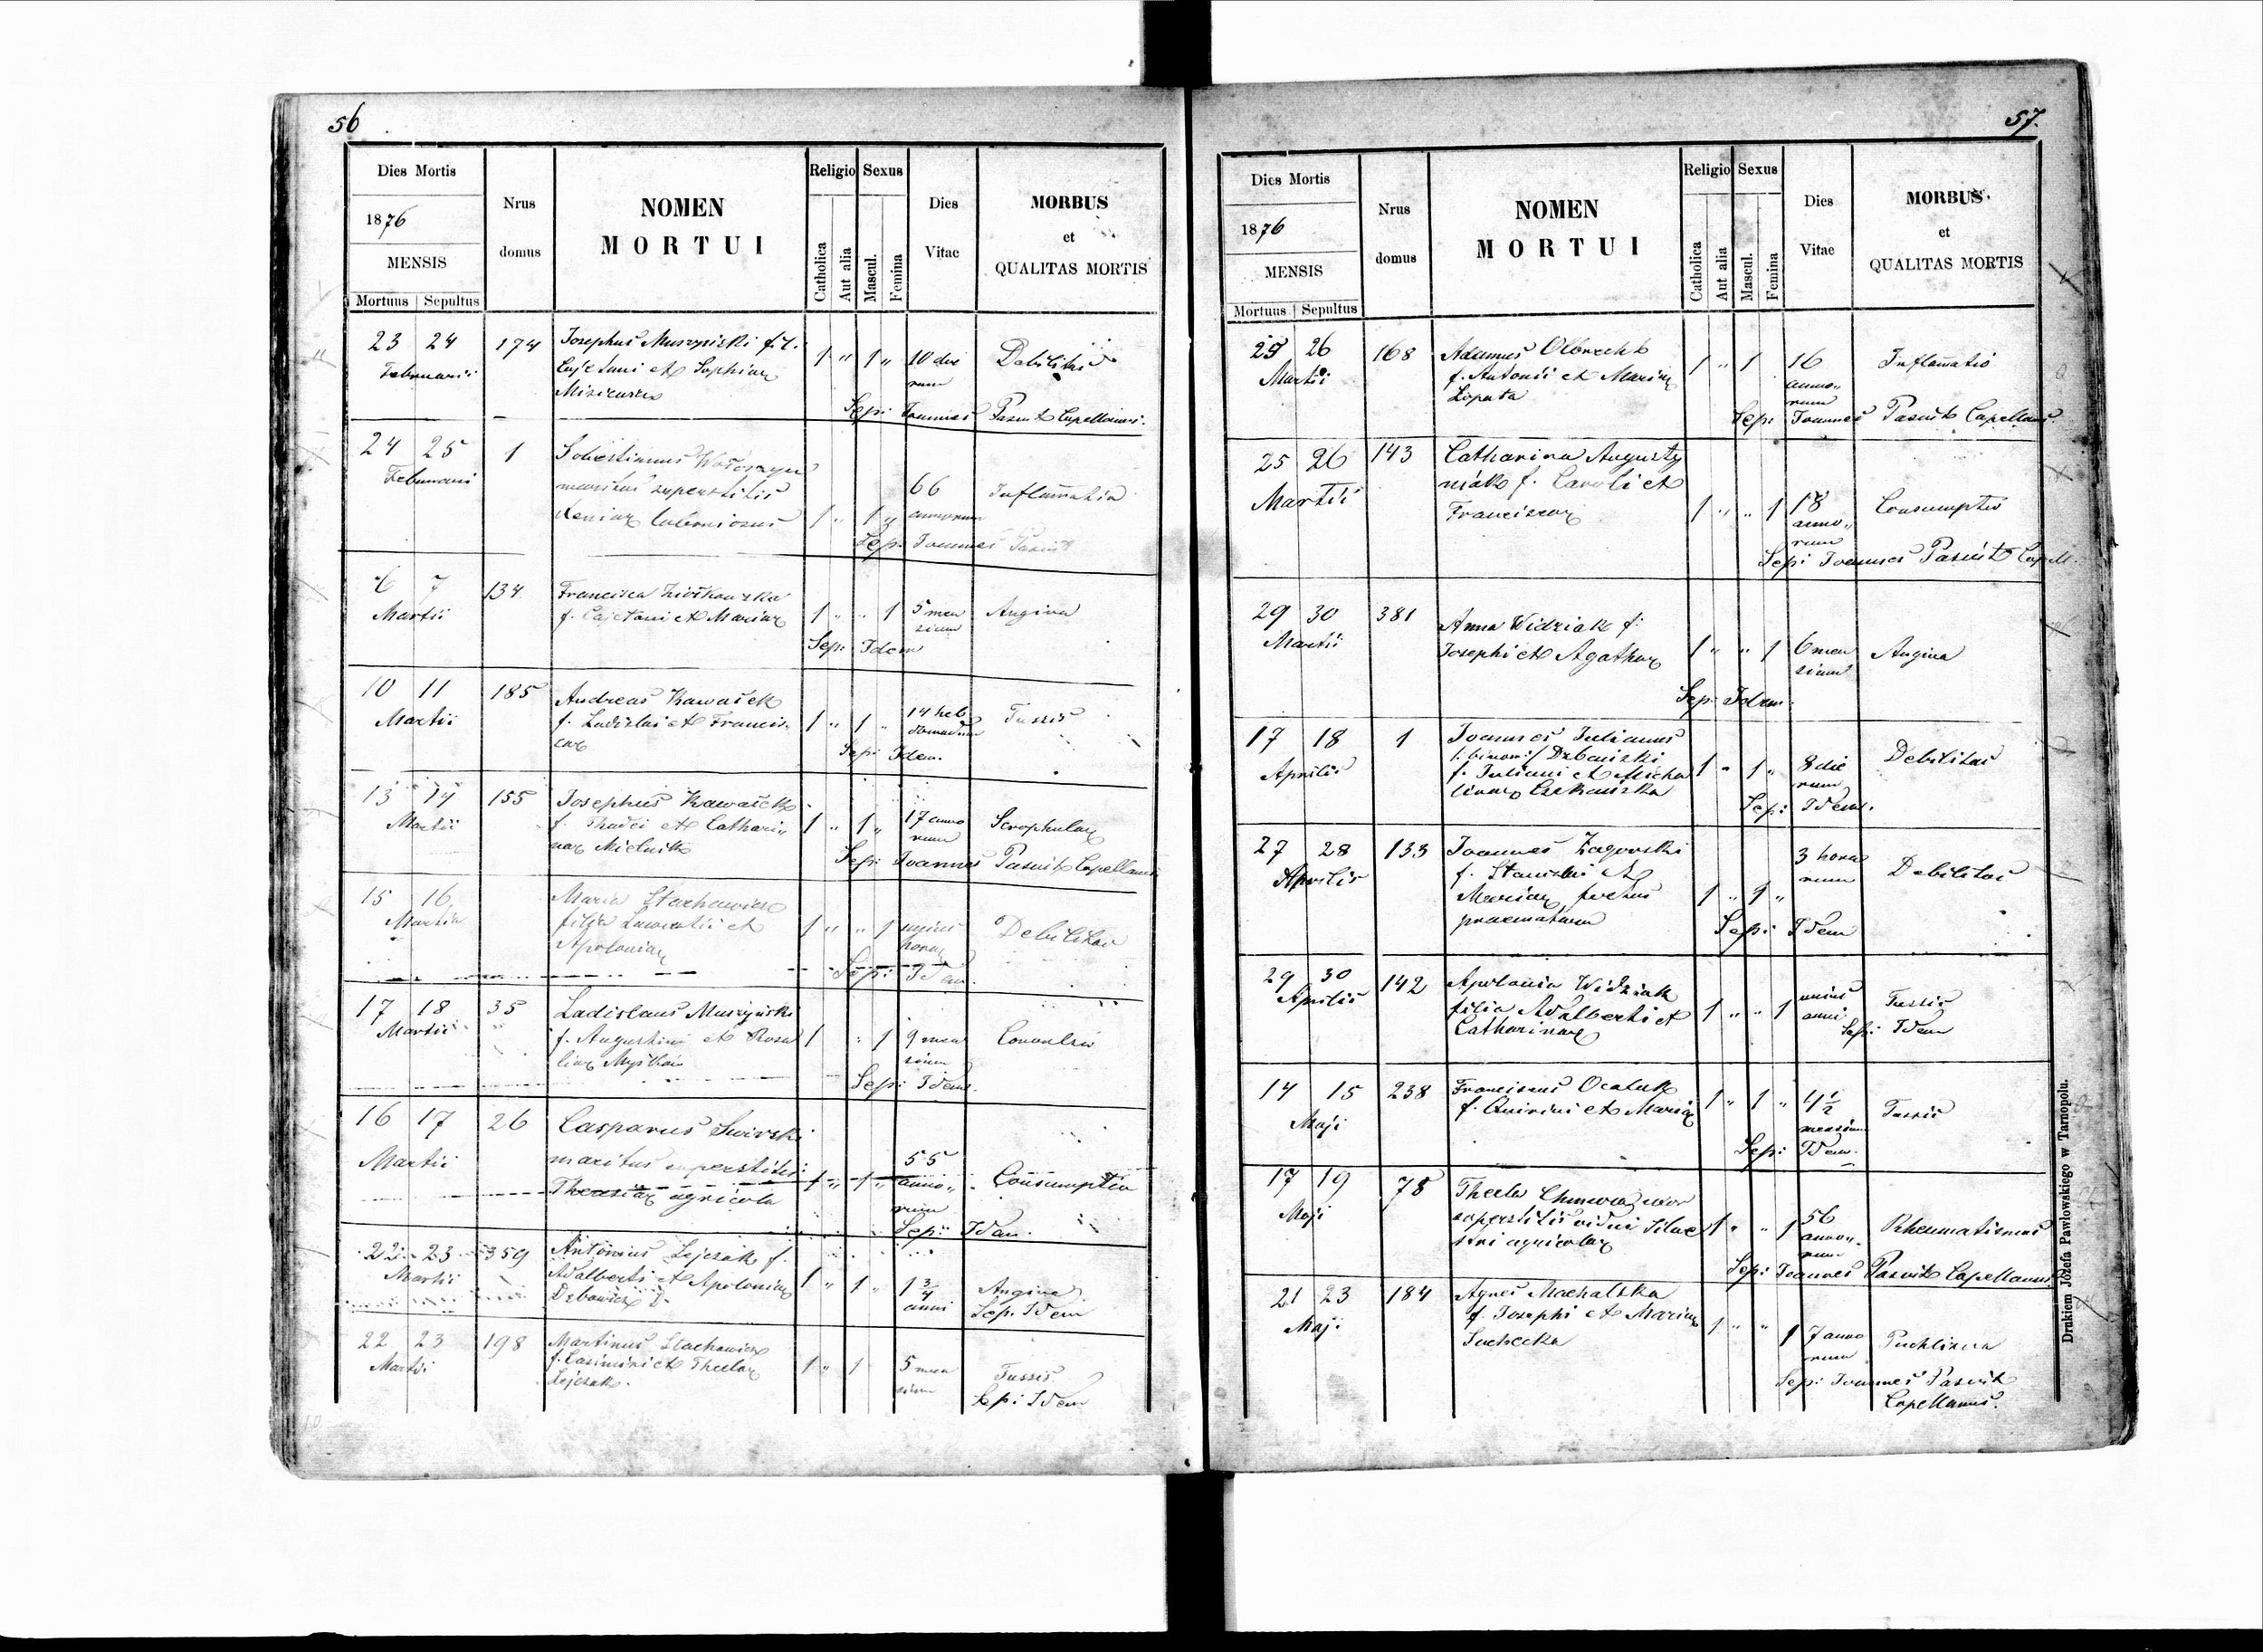 56
Dies Mortis
Nrus domus
NOMEN MORTUI
Religio
Sexus
Dies Vitae
MORBUS et QUALITAS MORTIS
1876
MENSIS
Mortuus Sepultus
Catholica
Aut alia
Mascul.
Femina
23 24 174 Josephus
Februarii Cajetani et Sophiae 1 " 1 " 10 die Debilitas
rum
Sep: Joannes Pasiut Capellanus.
24 25 1
Februarii maritus superstitis 66 Inflamatio
laboriosus 1 " 1 " annorum
Sep: Joannes Pasiut
6 7 134 Francisca
Martii f. Cajetani et Mariae 1 " " 1 5 men Angina
sium
Sep: Idem
10 11 185 Andreas Kawałek
Martii f. Ladislai et Francis 1 " 1 " 14 heb Tussis
cae domadum
Sep: Idem.
13 14 155 Josephus Kawałek
Martii f. Thadei et Cathari 1 " 1 " 17 anno Scrophulae
nae Mielnik rum
Sep: Joannes Pasiut Capellanus
15 16 Maria Stachowicz
Martii filia Laurentii et 1 " " 1 unius Debilitas
Apoloniae horae
Sep: Idem.
17 18 35 Ladislaus Muszyński
Martii f. Augustini et Rosa 1 " 1 9 men
liae sium
Sep: Idem.
16 17 26 Casparus Swirski
Martii maritus superstitis 55
Theresiae agricola 1 " 1 " anno Consumptio
rum
Sep: Idem.
22 23 359 Antonius Lejczak f.
Martii Adalberti et Apoloniae 1 " 1 " 1 3/4 Angina
anni Sep: Idem
22 23 198 Martinus Stachowicz
Martii f. Casimiri et Theclae 1 " 1 5 men Tussis
Lejczak. sium Sep: Idem
57.
Dies Mortis
Nrus domus
NOMEN MORTUI
Religio
Sexus
Dies Vitae
MORBUS et QUALITAS MORTIS
1876
MENSIS
Mortuus Sepultus
Catholica
Aut alia
Mascul.
Femina
25 26 168 Adamus Olbrecht
Martii f. Antonii et Mariae 1 " 1 16 Inflamatio
Łopata anno
rum
Sep: Joannes Pasiut Capellanus.
25 26 143 Catharina Augusty
Martii niak f. Caroli et
Franciscae 1 " " 1 18 Consumptio
anno
rum
Sep: Joannes Pasiut Capell.
29 30 381 Anna Widziak f.
Martii Josephi et Agathae 1 " " 1 6 men Angina
sium
Sep: Idem.
17 18 1 Joannes Julianus
Aprilis
f. Juliani et Micha 1 " 1 " 8 die Debilitas
linae rum
Sep: Idem.
27 28 133 Joannes Zagorski
Aprilis f. Stanislai et 3 hora Debilitas
Mariae foetus 1 " 1 " rum
praematurus
Sep: Idem
29 30 142 Apolonia Widziak
Aprilis filia Adalberti et 1 " " 1 unius Tussis
Catharinae anni
Sep: Idem
14 15 238 Franciscus
Maji f. Quirini et Mariae 1 " 1 " 4 1/2 Tussis
mensium
Sep: Idem.
17 19 78 Thecla uxor
Maji superstitis vidui Silve 1 " " 1 56 Rheumatismus
stri agricolae anno
rum
Sep: Joannes Pasiut Capellanus
21 23 184 Agnes Machalska
Maji f. Josephi et Mariae 1 " " 1 7 anno Puchlina
Suchecka rum
Sep: Joannes Pasiut
Capellanus.
Drukiem Józefa Pawłowskiego w Tarnopolu.